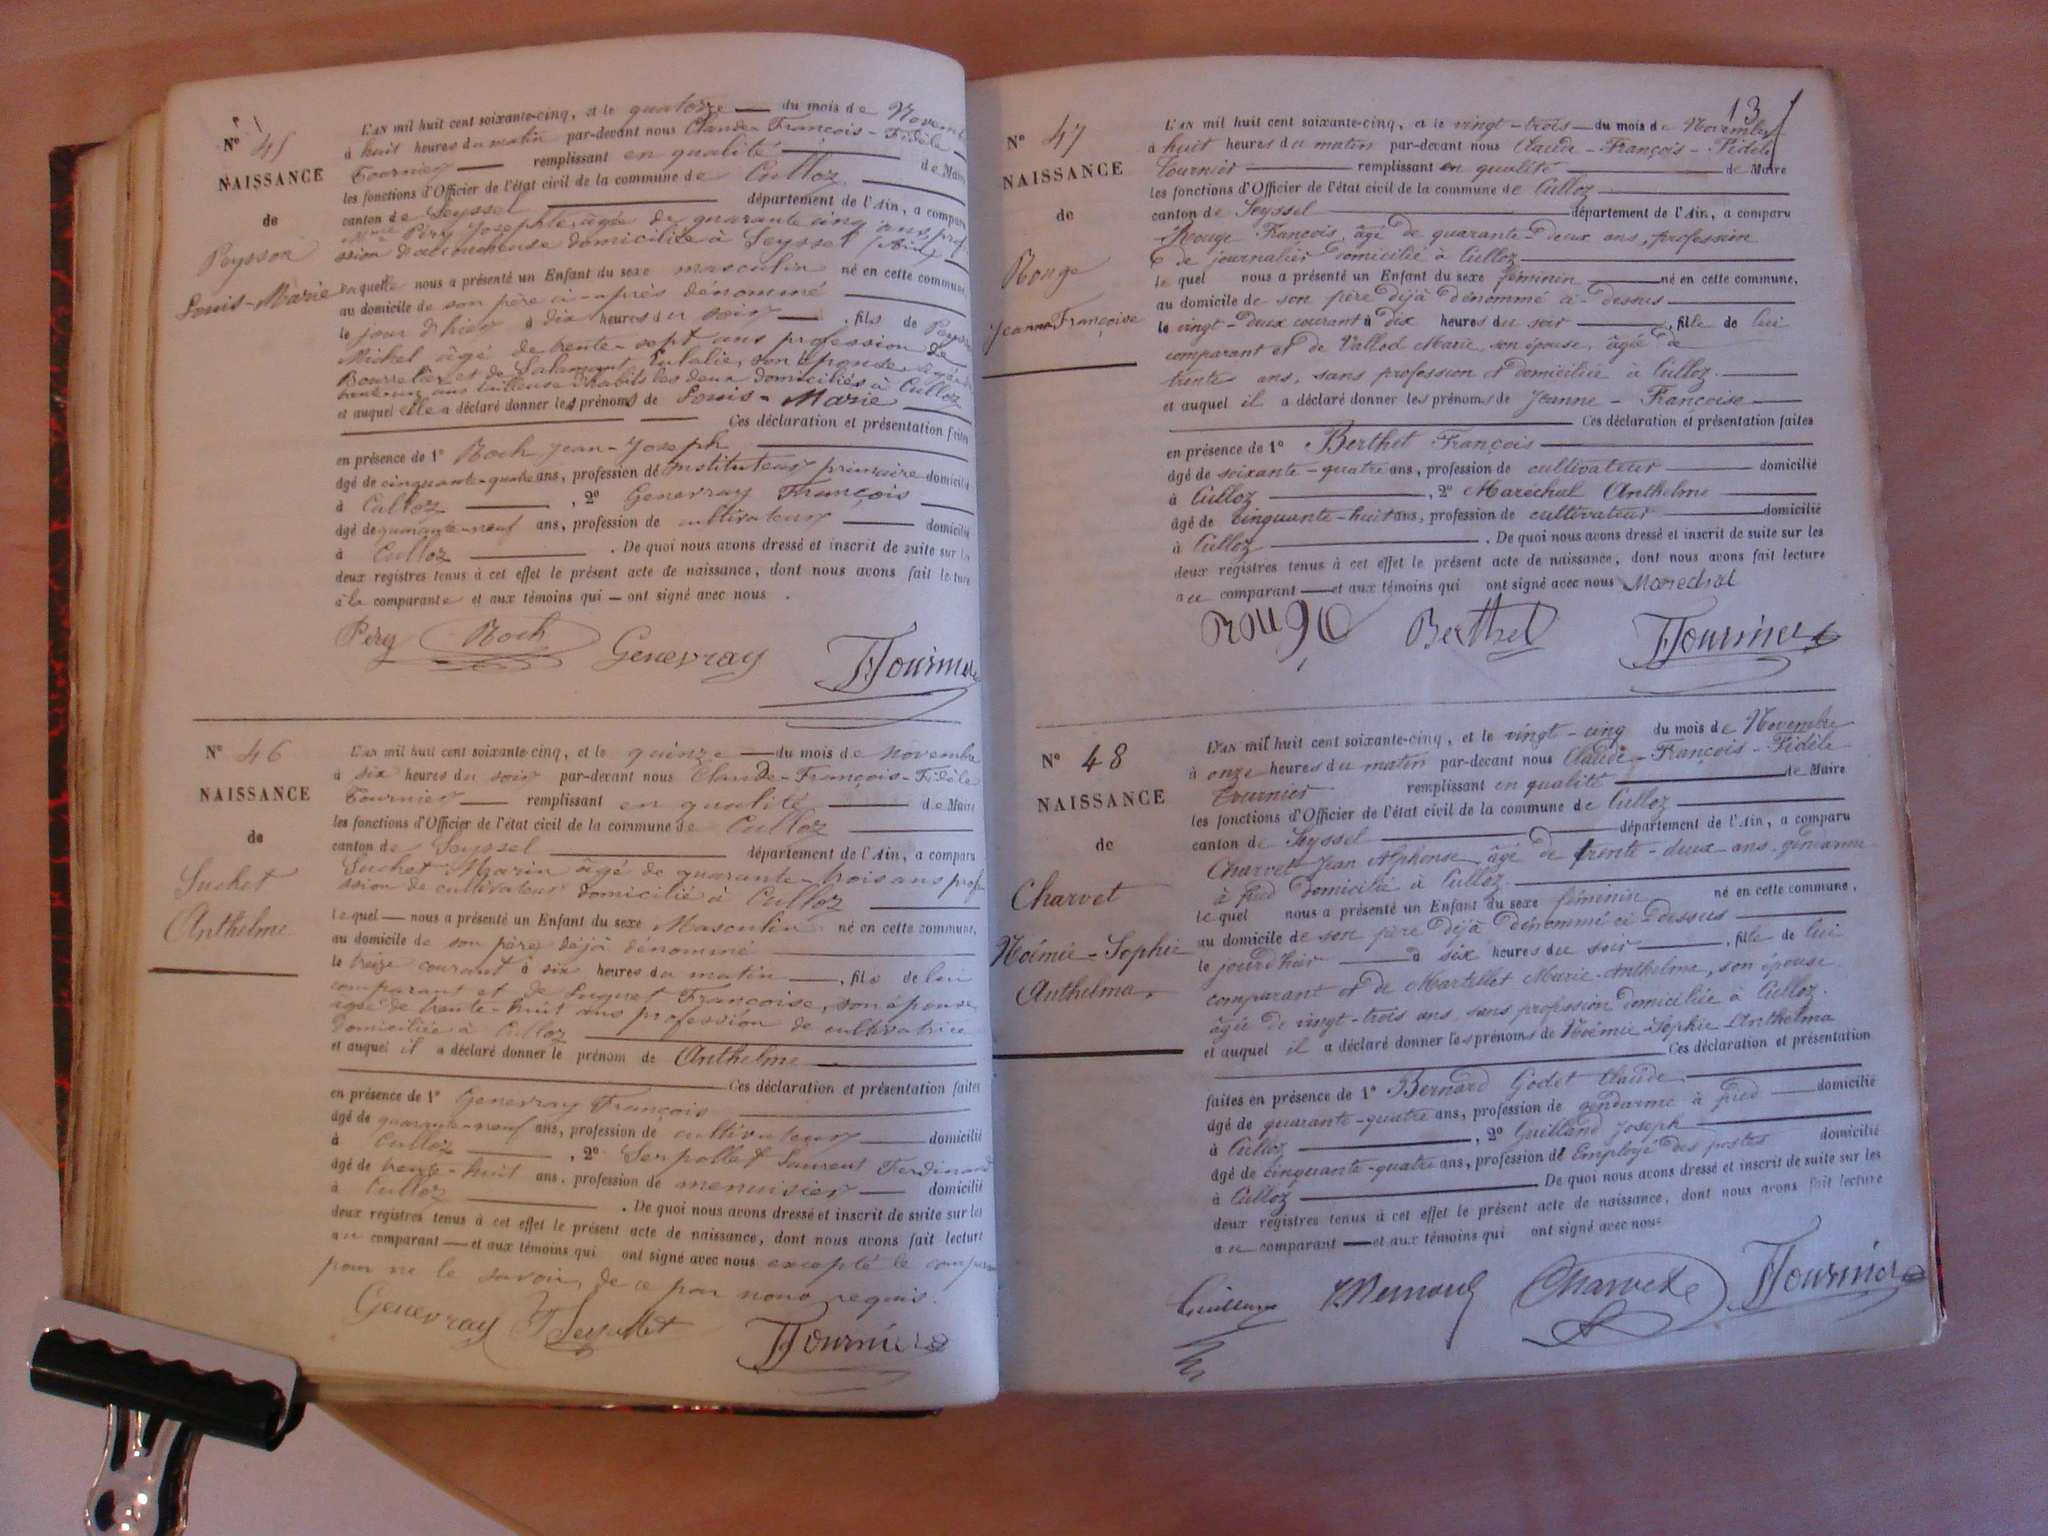 N° 45
NAISSANCE
de
Peysson
Louis-Marie
L'AN mil huit cent soixante-cinq, et le quatorze du mois de Novemb
à huit heures du matin par-devant nous Claude-François-Fidèle
Tournier remplissant en qualité de Maire
les fonctions d'Officier de l'état civil de la commune de Culloz
canton de Seyssel département de l'Ain, a comparu
Péry Josephte, âgée de quarante cinq ans, profe
ssion d'accoucheuse domiciliée à Seyssel (Ain)
laquelle nous a présenté un Enfant du sexe masculin né en cette commune,
au domicile de son père ci-après dénommé
le jour d'hier à dix heures du soir, fils de Peysson
Michel âgé de trente-sept ans profession de
Bourrelier et de Salamant Eulalie, son épouse,
ans tailleuse d'habits les deux domiciliés à Culloz
et auquel elle a déclaré donner les prénoms de Louis-Marie
Ces déclaration et présentation faites
en présence de 1° Roch Jean-Joseph
âgé de cinquante-quatre ans, profession de instituteur primaire domicilié
à Culloz, 2° Genevray François
âgé de quarante-neuf ans, profession de cultivateur domicilié
à Culloz. De quoi nous avons dressé et inscrit de suite sur les
deux registres tenus à cet effet le présent acte de naissance, dont nous avons fait lecture
à la comparante et aux témoins qui ont signé avec nous.
Péry Roch Genevray Tournier
N° 46
NAISSANCE
de
Suchet
Anthelme
L'AN mil huit cent soixante-cinq, et le quinze du mois de novembre
à six heures du soir par-devant nous Claude-François-Fidèle
Tournier remplissant en qualité de Maire
les fonctions d'Officier de l'état civil de la commune de Culloz
canton de Seyssel département de l'Ain, a comparu
Suchet Marin âgé de quarante-trois ans profe
ssion de cultivateur domicilié à Culloz
lequel nous a présenté un Enfant du sexe Masculin né en cette commune,
au domicile de son père déjà dénommé
le treize courant à six heures du matin, fils de lui
comparant et de Luquet Françoise, son épouse
âgée de trente-huit ans profession de cultivatrice
domiciliée à Culloz
et auquel il a déclaré donner le prénom de Anthelme
Ces déclaration et présentation faites
en présence de 1° Genevray François
âgé de quarante-neuf ans, profession de cultivateur domicilié
à Culloz, 2° Serpollet Laurent Ferdinand
âgé de trente-huit ans, profession de menuisier domicilié
à Culloz. De quoi nous avons dressé et inscrit de suite sur les
deux registres tenus à cet effet le présent acte de naissance, dont nous avons fait lecture
au comparant et aux témoins qui ont signé avec nous excepté le comparant
pour ne le savoir, de ce par nous requis.
Genevray Serpollet Tournier
13
N° 47
NAISSANCE
de
Rouge
Jeanne Françoise
L'AN mil huit cent soixante-cinq, et le vingt-trois du mois de Novembre
à huit heures du matin par-devant nous Claude-François-Fidèle
Tournier remplissant en qualité de Maire
les fonctions d'Officier de l'état civil de la commune de Culloz
canton de Seyssel département de l'Ain, a comparu
Rouge François, âgé de quarante-deux ans, profession
de journalier domicilié à Culloz
lequel nous a présenté un Enfant du sexe féminin né en cette commune,
au domicile de son père déjà dénommé ci-dessus
le vingt-deux courant à dix heures du soir, fille de lui
comparant et de Vallod Marie, son épouse, âgée de
trente ans, sans profession et domiciliée à Culloz.
et auquel il a déclaré donner les prénoms de Jeanne-Françoise
Ces déclaration et présentation faites
en présence de 1° Berthet François
âgé de soixante-quatre ans, profession de cultivateur domicilié
à Culloz, 2° Maréchal Anthelme
âgé de cinquante-huit ans, profession de cultivateur domicilié
à Culloz. De quoi nous avons dressé et inscrit de suite sur les
deux registres tenus à cet effet le présent acte de naissance, dont nous avons fait lecture
au comparant et aux témoins qui ont signé avec nous Marechal
Rouge Berthet Tournier
N° 48
NAISSANCE
de
Charvet
Noémie-Sophie
Anthelma
L'AN mil huit cent soixante-cinq, et le vingt-cinq du mois de Novembre
à onze heures du matin par-devant nous Claude-François-Fidèle
Tournier remplissant en qualité de Maire
les fonctions d'Officier de l'état civil de la commune de Culloz
canton de Seyssel département de l'Ain, a comparu
Charvet Jean Alphonse, âgé de trente-deux ans, gendarme
à pied domicilié à Culloz
lequel nous a présenté un Enfant du sexe féminin né en cette commune,
au domicile de son père déjà dénommé ci dessus
le jour d'hier à six heures du soir, fille de lui
comparant et de Martellet Marie-Anthelma, son épouse
âgée de vingt-trois ans, sans profession domiciliée à Culloz.
et auquel il a déclaré donner les prénoms de Noémie-Sophie Anthelma
Ces déclaration et présentation
faites en présence de 1° Bernard Godet Claude
âgé de quarante-quatre ans, profession de gendarme à pied domicilié
à Culloz, 2° Guilland Joseph
âgé de cinquante-quatre ans, profession de Employé des postes domicilié
à Culloz. De quoi nous avons dressé et inscrit de suite sur les
deux registres tenus à cet effet le présent acte de naissance, dont nous avons fait lecture
au comparant et aux témoins qui ont signé avec nous
Charvet Tournier